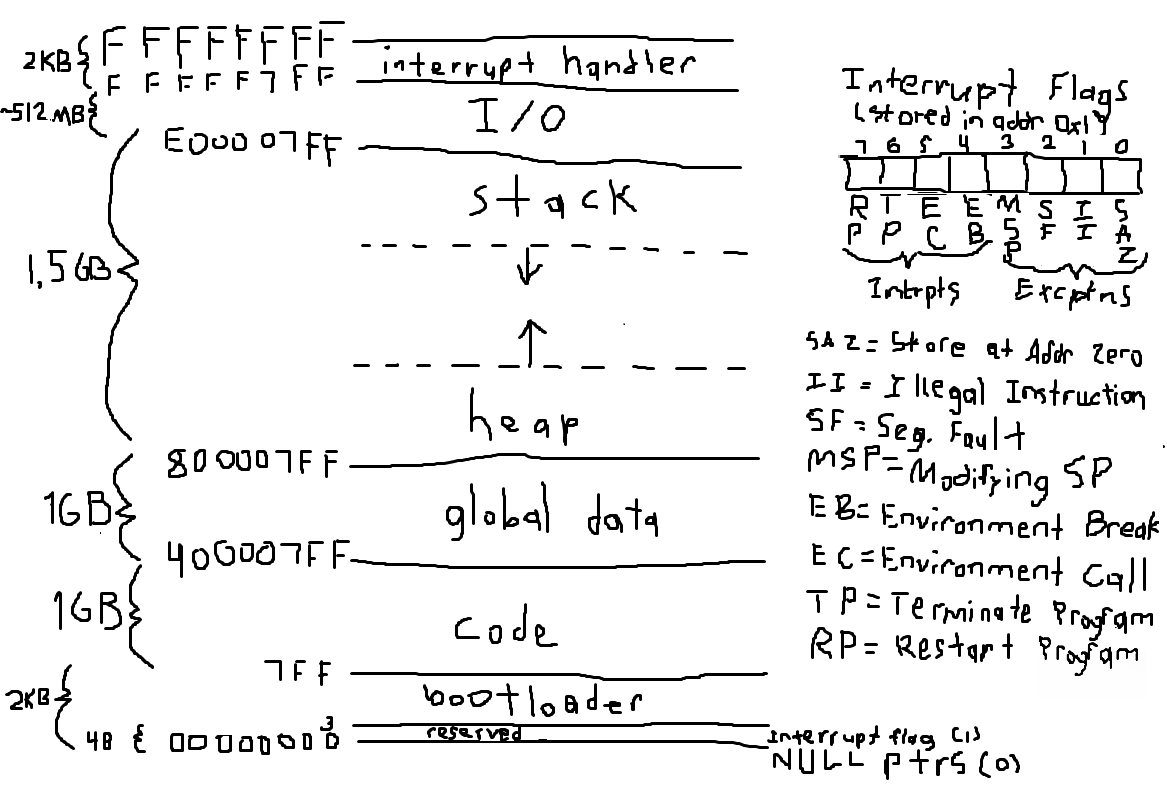 FFFFFFFF
2KB
interrupt handler
FFFFF7FF
~512MB
I/O
E00007FF
stack
1,5GB
heap
800007FF
1GB
global data
400007FF
1GB
code
7FF
2KB
bootloader
3
4B
00000000
reserved
Interrupt flag (1)
NULL ptrs (0)
Interrupt Flags
(stored in addr 0x1)
7 6 5 4 3 2 1 0
RP TP EC EB MSP SF II SAZ
Intrpts Excptns
SAZ = Store at Addr Zero
II = Illegal Instruction
SF = Seg. Fault
MSP = Modifying SP
EB = Environment Break
EC = Environment Call
TP = Terminate Program
RP = Restart Program